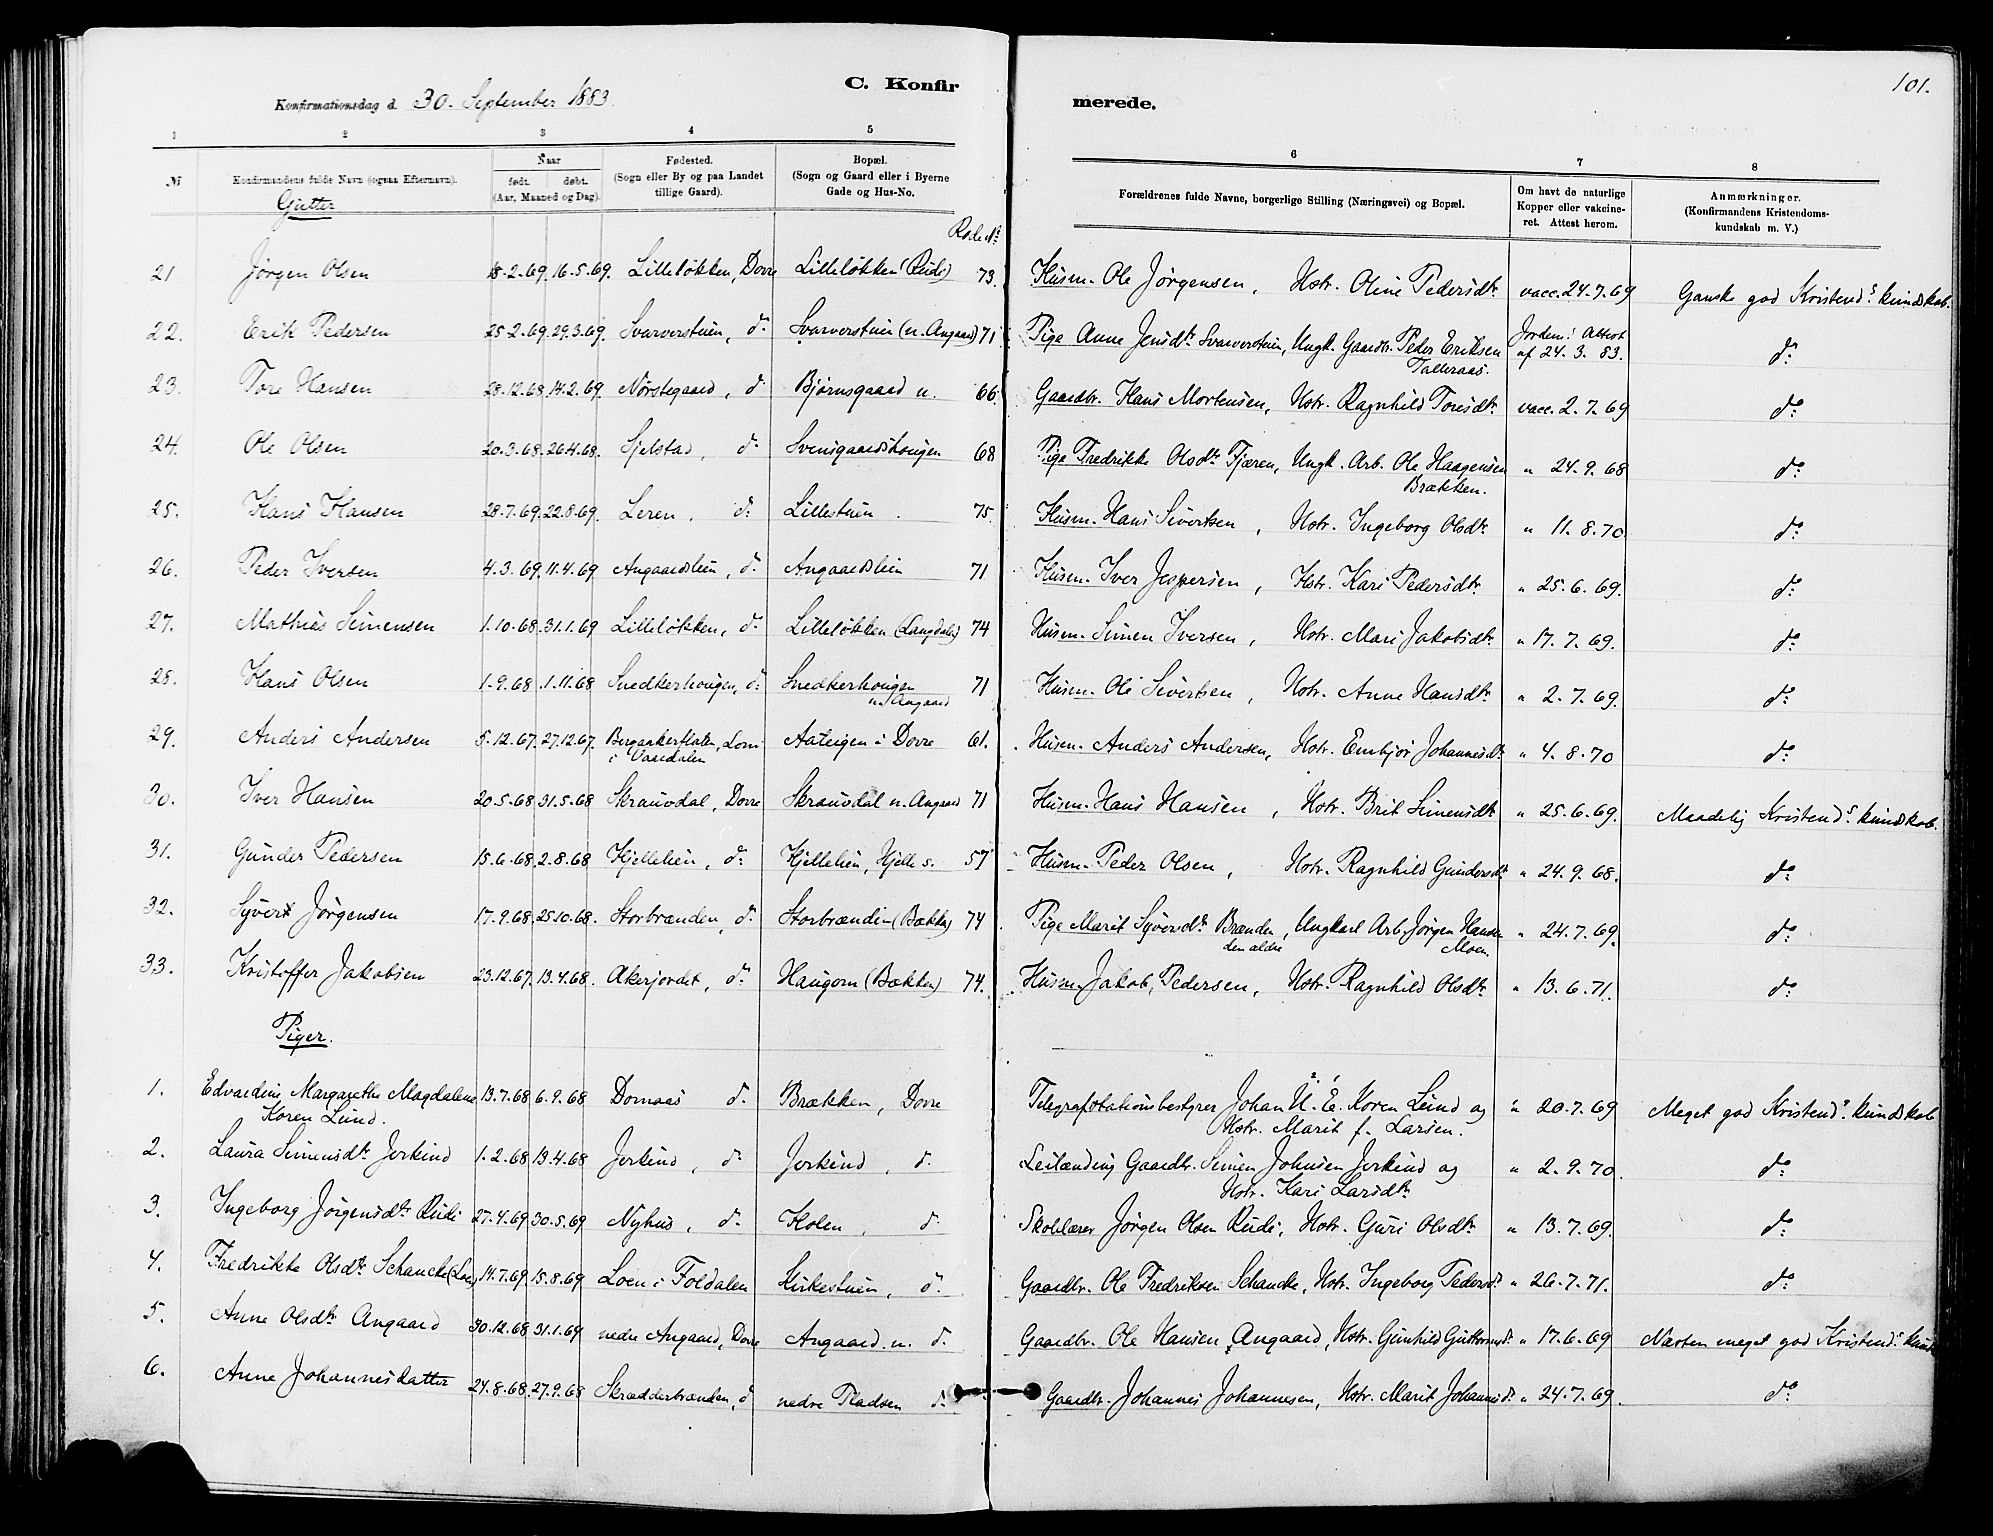 101.
C. Konfirmerede.
Konfirmationsdag d. 30. September 1883.
1 2 3 4 5 6 7 8
№ Konfirmandens fulde Navn (ogsaa Efternavn). Naar født. døbt. (Aar, Maaned og Dag). Fødested. (Sogn eller By og paa Landet tillige Gaard). Bopæl. (Sogn og Gaard eller i Byerne Gade og Hus-No. Forældrenes fulde Navne, borgerlige Stilling (Næringsvei) og Bopæl. Om havt de naturlige Kopper eller vakcineret. Attest herom. Anmærkninger. (Konfirmandens Kristendomskundskab m. V.)
Gutter
21 Jørgen Olsen 18.2.69. 16.5.69. Lilleløkken, Dovre Lilleløkken (Rudi) 73. Husm. Ole Jørgensen, Hstr. Oline Pedersdtr. vacc. 24.7.69 Ganske god Kristends kundskab.
22. Erik Pedersen 25.2.69. 29.3.69. Svarverstuen, do Svarverstuen (n. Angaard) 71 Pige Anne Jensdtr Svarverstuen, Ungk. Gaardbr. Peder Eriksen Jordem. Attest af 24.3.83. do
Talleraas.
23. Tore Hansen 28.12.68 14.2.69. Nørstegaard, do Bjørnsgaard n. 66. Gaardbr. Hans Mortensen, Hstr. Ragnhild Toresdtr. vacc. 2.7.69 do
24. Ole Olsen 20.3.68. 26.4.68. Sjelstad, do Svensgaardshougen 68 Pige Fredrikke Olsdtr Tjæren, Ungk. Arb. Ole Haagensen " 24.9.68 do
Brækken.
25. Hans Hansen 28.7.69. 22.8.69. Leren, do Lillestuen 75. Husm. Hans Sivertsen, Hstr. Ingeborg Olsdtr " 11.8.70 do
26. Peder Iversen 4.3.69. 11.4.69 Angaardslien, do Angaardslien 71 Husm. Iver Jespersen, Hstr. Kari Pedersdtr. " 25.6.69. do
27. Mathies Simensen 1.10.68. 31.1.69 Lilleløkken, do Lilleløkken (Langdalen) 74 Husm. Simen Iversen, Hstr. Mari Jakobsdtr " 17.7.69. do
28. Hans Olsen 1.9.68. 1.11.68 Snedkerhougen, do Snedkerhougen 71 Husm. Ole Sivertsen, Hstr. Anne Hansdtr " 2.7.69. do
n. Angaard
29. Anders Andersen 5.12.67. 27.12.67. Aateigen i Dovre 61. Husm. Anders Andersen, Hstr. Embjør Johannesdtr " 4.8.70 do
i Vaardalen
30. Iver Hansen 20.5.68 31.5.68 Skrauvdal, Dovre Skrauvdal n. Angaard 71 Husm. Hans Hansen, Hstr. Brit Simensdtr " 25.6.69. Maadelig Kristends kundskab.
31. Gunder Pedersen 15.6.68. 2.8.68 Kjellelien, do Kjellelien, Kjelle s. 57 Husm. Peder Olsen, Hstr. Ragnhild Gundersdtr " 24.9.68. do
32. Syver Jørgensen 17.9.68 25.10.68. Storbrænden, do Storbrænden (Bækken) 74 Pige Marit Syversdtr Brænden, Ungkarl Arb. Jørgen Hansen " 24.7.69. do
den ældre Moen.
33. Kristoffer Jakobsen 23.12.67. 13.4.68. Akerjordet, do Haugom (Bækken) 74. Husm. Jakob Pedersen, Hstr. Ragnhild Olsdtr. " 13.6.71. do
Piger.
1. Edvardine Margarethe Magdalene 13.7.68 6.9.68 Domaas do Brækken, Dovre Telegrafstationbestyrer Johan N. E. Koren Lund og " 20.7.69 Meget god Kristends. kundskab
Koren Lund. Hstr. Marit f. Larsen.
2. Laura Simensdtr Jerkind 1.2.68 13.4.68 Jerkind, do Jerkind, do. Leilænding Gaardbr. Simen Johnsen Jerkind og " 2.9.70. do
Hstr. Kari Larsdtr
3. Ingeborg Jørgensdtr Rudi 27.4.69 30.5.69 Nyhus, do Kolen, do Skolelærer Jørgen Olsen Rudi, Hstr. Guri Olsdtr " 13.7.69. do
4. Fredrikke Olsdtr Schancke (Loen) 14.7.69. 15.8.69 Loen i Foldalen Kirkestuen, do. Gaardbr. Ole Fredriksen Schancke, Hstr. Ingeborg Pedersdr " 26.7.71. do
5. Anne Olsdtr Angaard 30.12.68 31.1.69 nedre Angaard, Dovre Angaard n. do. Gaardbr. Ole Hansen Angaard, Hstr. Gunhild Guttormsdr " 17.6.69 Næsten meget god Kristends. kund
6. Anne Johannesdatter 24.8.68. 27.9.68 Skrædderbrænden, do nedre Pladsen do Gaardbr. Johannes Johannesen, Hstr. Marit Johannesdr " 24.7.69. do